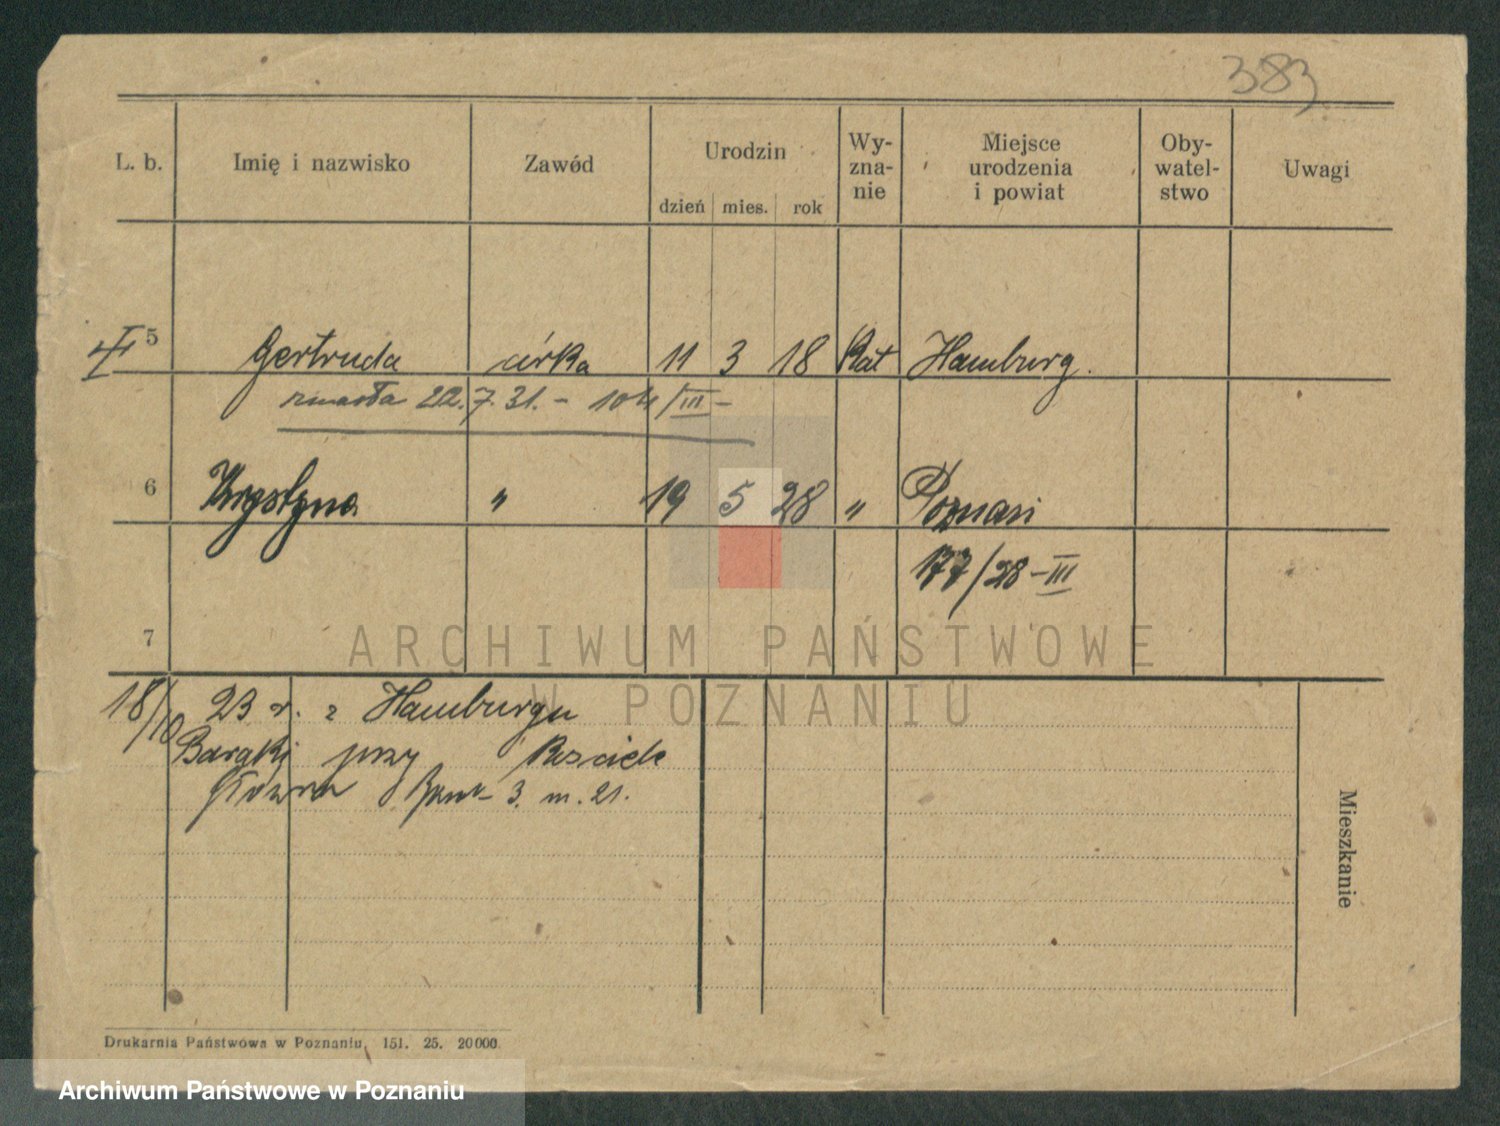 383
L. b. Imię i nazwisko Zawód Urodzin Wy-zna-nie Miejsce urodzenia i powiat Oby-watel-stwo Uwagi
dzień mies. rok
5 Gertruda córka 11 3 18 Kat Hamburg.
zmarła 22.7.31. – /III –
6 Krystyna " 19 5 28 " Poznań
177/28 – III
7
ARCHIWUM PAŃSTWOWE
W POZNANIU
18/10 23 r. z Hamburgu
Baraki przy
Główna 3. m. 21.
Mieszkanie
Drukarnia Państwowa w Poznaniu, 151. 25. 20000.
Archiwum Państwowe w Poznaniu